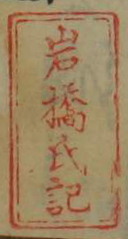 岩橋氏記